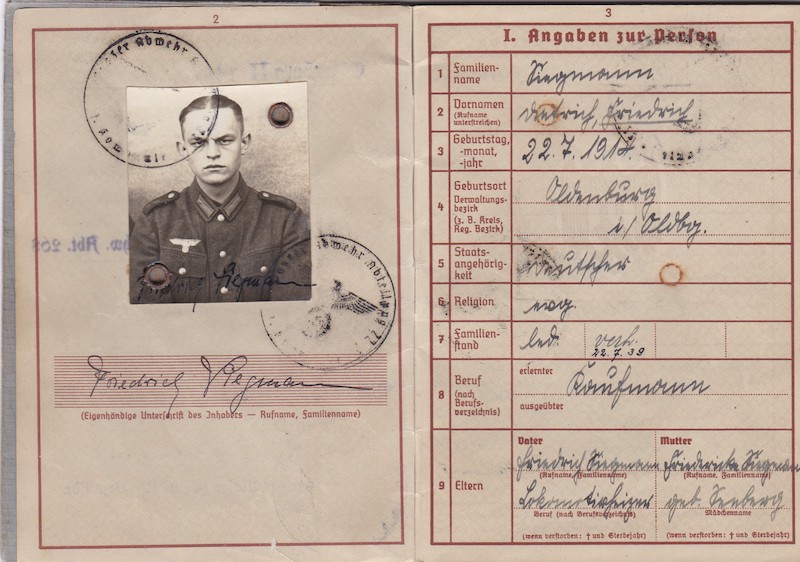 2
Friedrich Siegmann
(Eigenhändige Unterschrift des Inhabers — Rufname, Familienname)
3
I. Angaben zur Person
1 Familien-
name
Siegmann
2 Vornamen
(Rufname
unterstreichen)
Dietrich, Friedrich
3 Geburtstag,
-monat,
-jahr
22.7.1914
4 Geburtsort
Verwaltungs-
bezirk
(z. B. Kreis,
Reg. Bezirk)
Oldenburg
i/Oldbg.
5 Staats-
angehörig-
keit
Deutscher
6 Religion
evg.
7 Familien-
stand
led. verh.
22.7.39
8 Beruf
(nach
Berufs-
verzeichnis)
erlernter
Kaufmann
ausgeübter
9 Eltern
Vater
Friedrich Siegmann
(Rufname, Familienname)
Lokomotivheizer
Beruf (nach Berufsverzeichnis)
(wenn verstorben: † und Sterbejahr)
Mutter
Friedericke Siegmann
(Rufname, Familienname)
geb. Seeberg
Mädchenname
(wenn verstorben: † und Sterbejahr)